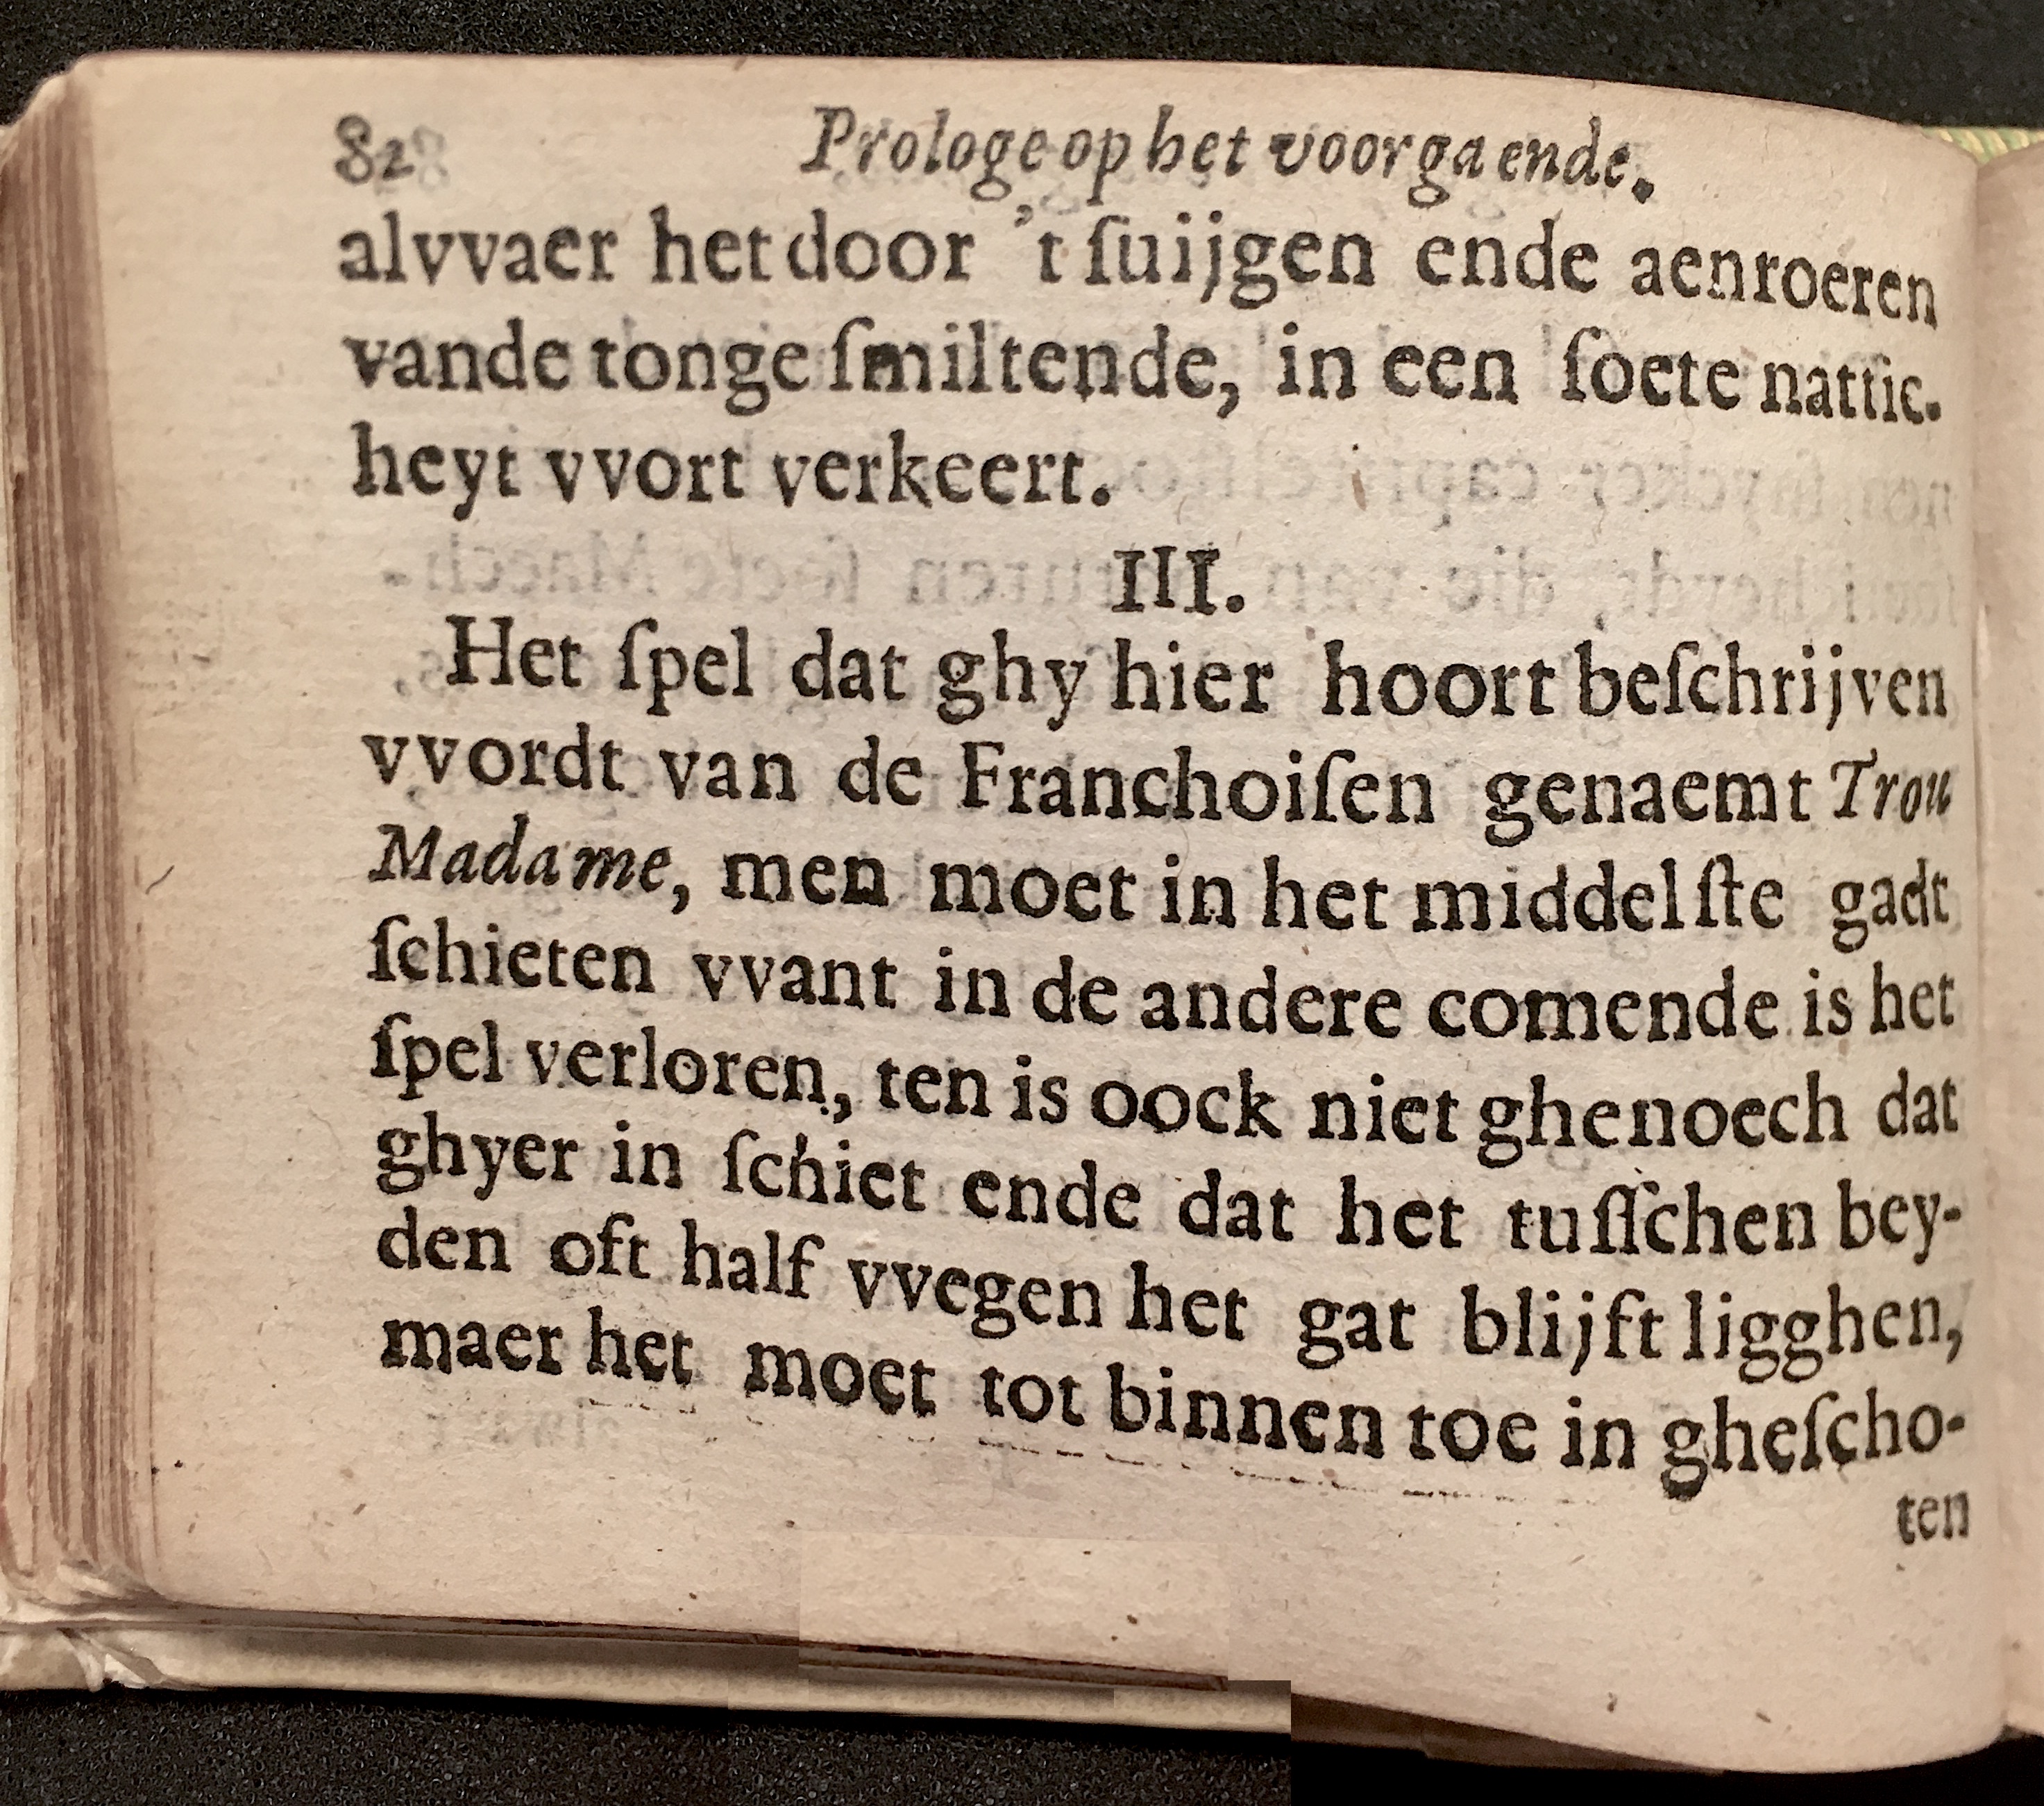 82 Prologe op het voorgaende.
alvvaer het door 't ſuijgen ende aenroeren
vande tonge ſmiltende, in een ſoete nattic.
heyt vvort verkeert.
III.
Het ſpel dat ghy hier hoort beſchrijven
vvordt van de Franchoiſen genaemt Trou
Madame, men moet in het middelſte gadt
ſchieten vvant in de andere comende is het
ſpel verloren, ten is oock niet ghenoech dat
ghyer in ſchiet ende dat het tuſſchen bey-
den oft half vvegen het gat blijft ligghen,
maer het moet tot binnen toe in gheſcho-
ten